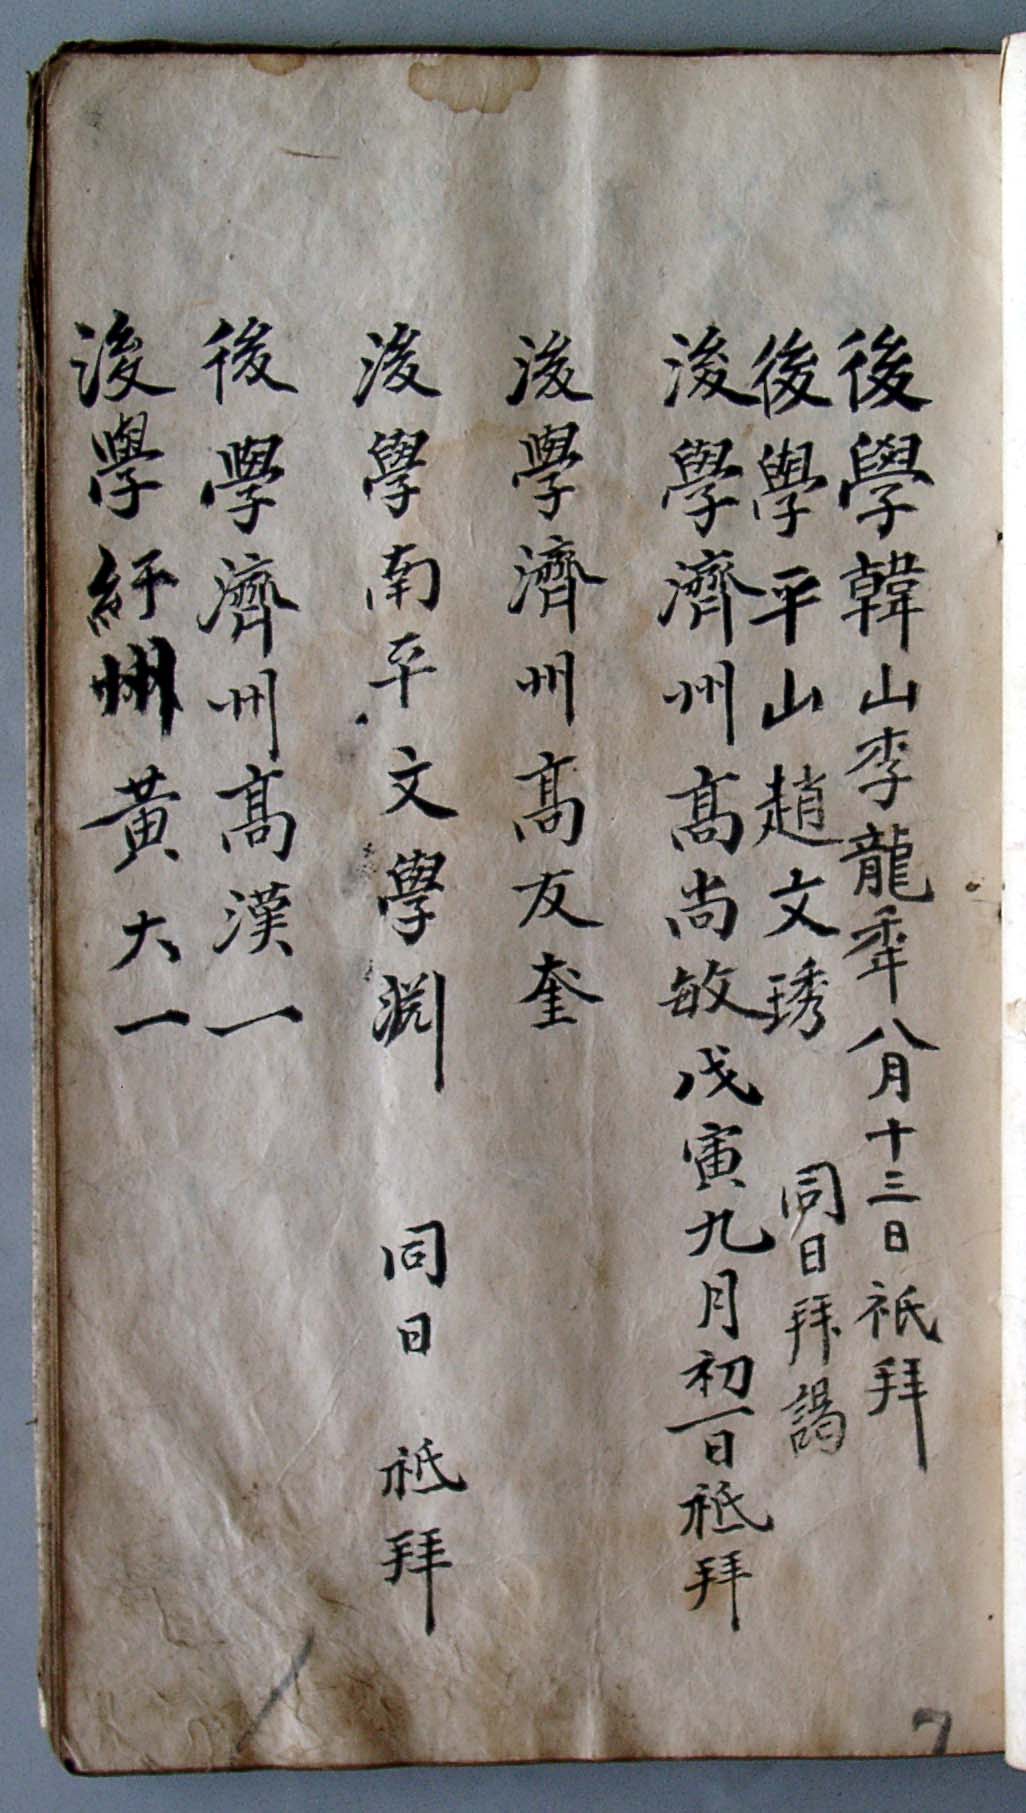 後學韓山李龍秊八月十三日祇拜
後學平山趙文琇 同日拜謁
後學濟州高尚敏戊寅九月初一日祗拜
後學濟州高友奎
後學南平文學淵 同日 祗拜
後學濟州高漢一
後學紆州黃大一
7